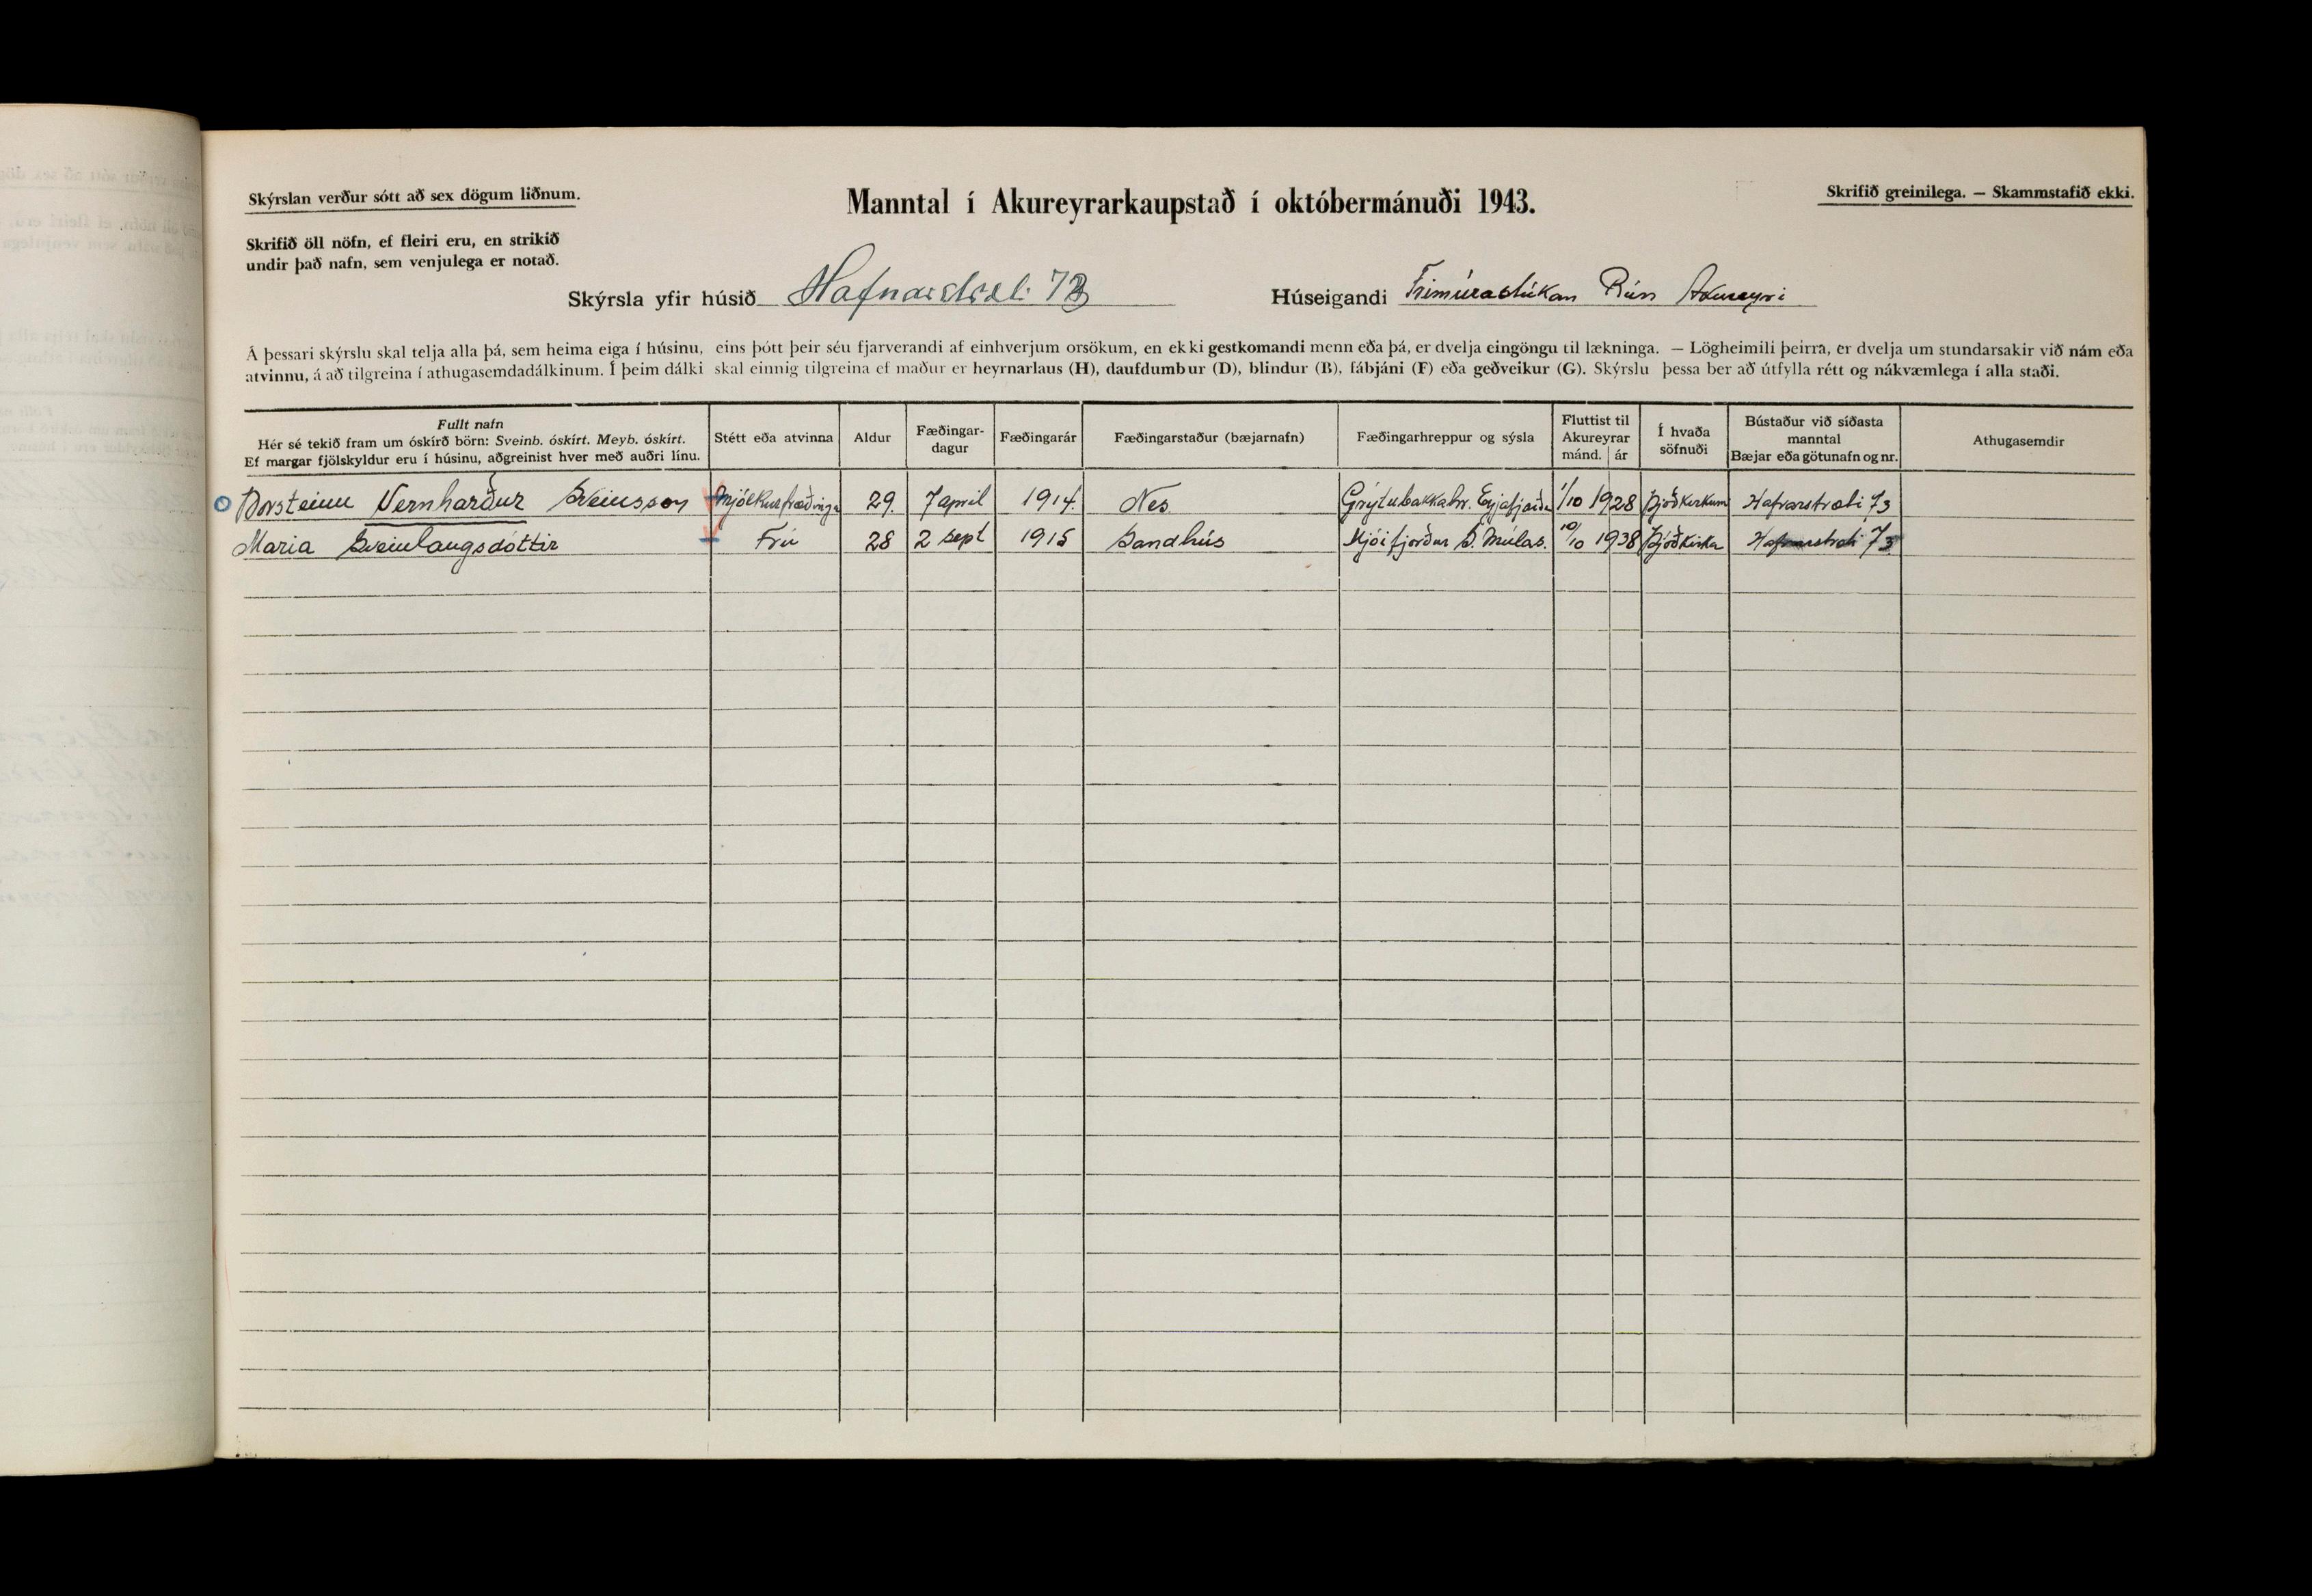 Skýrslan verður sótt að sex dögum liðnum.
Manntal í Akureyrarkaupstað í októbermánuði 1943.
Skrifið greinilega. — Skammstafið ekki.
Skrifið öll nöfn, ef fleiri eru, en strikið
undir það nafn, sem venjulega er notað.
Skýrsla yfir húsið Hafnarstræti 73
Húseigandi Frímúrastúkan Rún Akureyri
Á þessari skýrslu skal telja alla þá, sem heima eiga í húsinu, eins þótt þeir séu fjarverandi af einhverjum orsökum, en ekki gestkomandi menn eða þá, er dvelja eingöngu til lækninga. — Lögheimili þeirra, er dvelja um stundarsakir við nám eða
atvinnu, á að tilgreina í athugasemdadálkinum. Í þeim dálki skal einnig tilgreina ef maður er heyrnarlaus (H), daufdumbur (D), blindur (B), fábjáni (F) eða geðveikur (G). Skýrslu þessa ber að útfylla rétt og nákvæmlega í alla staði.
Fullt nafn
Hér sé tekið fram um óskírð börn: Sveinb. óskírt. Meyb. óskírt.
Ef margar fjölskyldur eru í húsinu, aðgreinist hver með auðri línu.
Stétt eða atvinna
Aldur
Fæðingar-
dagur
Fæðingarár
Fæðingarstaður (bæjarnafn)
Fæðingarhreppur og sýsla
Fluttist til
Akureyrar
mánd. ár
Í hvaða
söfnuði
Bústaður við síðasta
manntal
Bæjar eða götunafn og nr.
Athugasemdir
Þorsteinn Vernharður Sveinsson Mjólkurfræðingur 29. 7 april 1914. Nes Grýtubakkahr. Eyjafjarðar 1/10 1928 Þjóðkirkjunni Hafnarstræti 73
Maria Sveinlaugsdóttir Frú 28 2 sept 1915 Sandhús Mjóifjörður S. Múlas. 10/10 1938 Þjóðkirkja Hafnarstræti 73